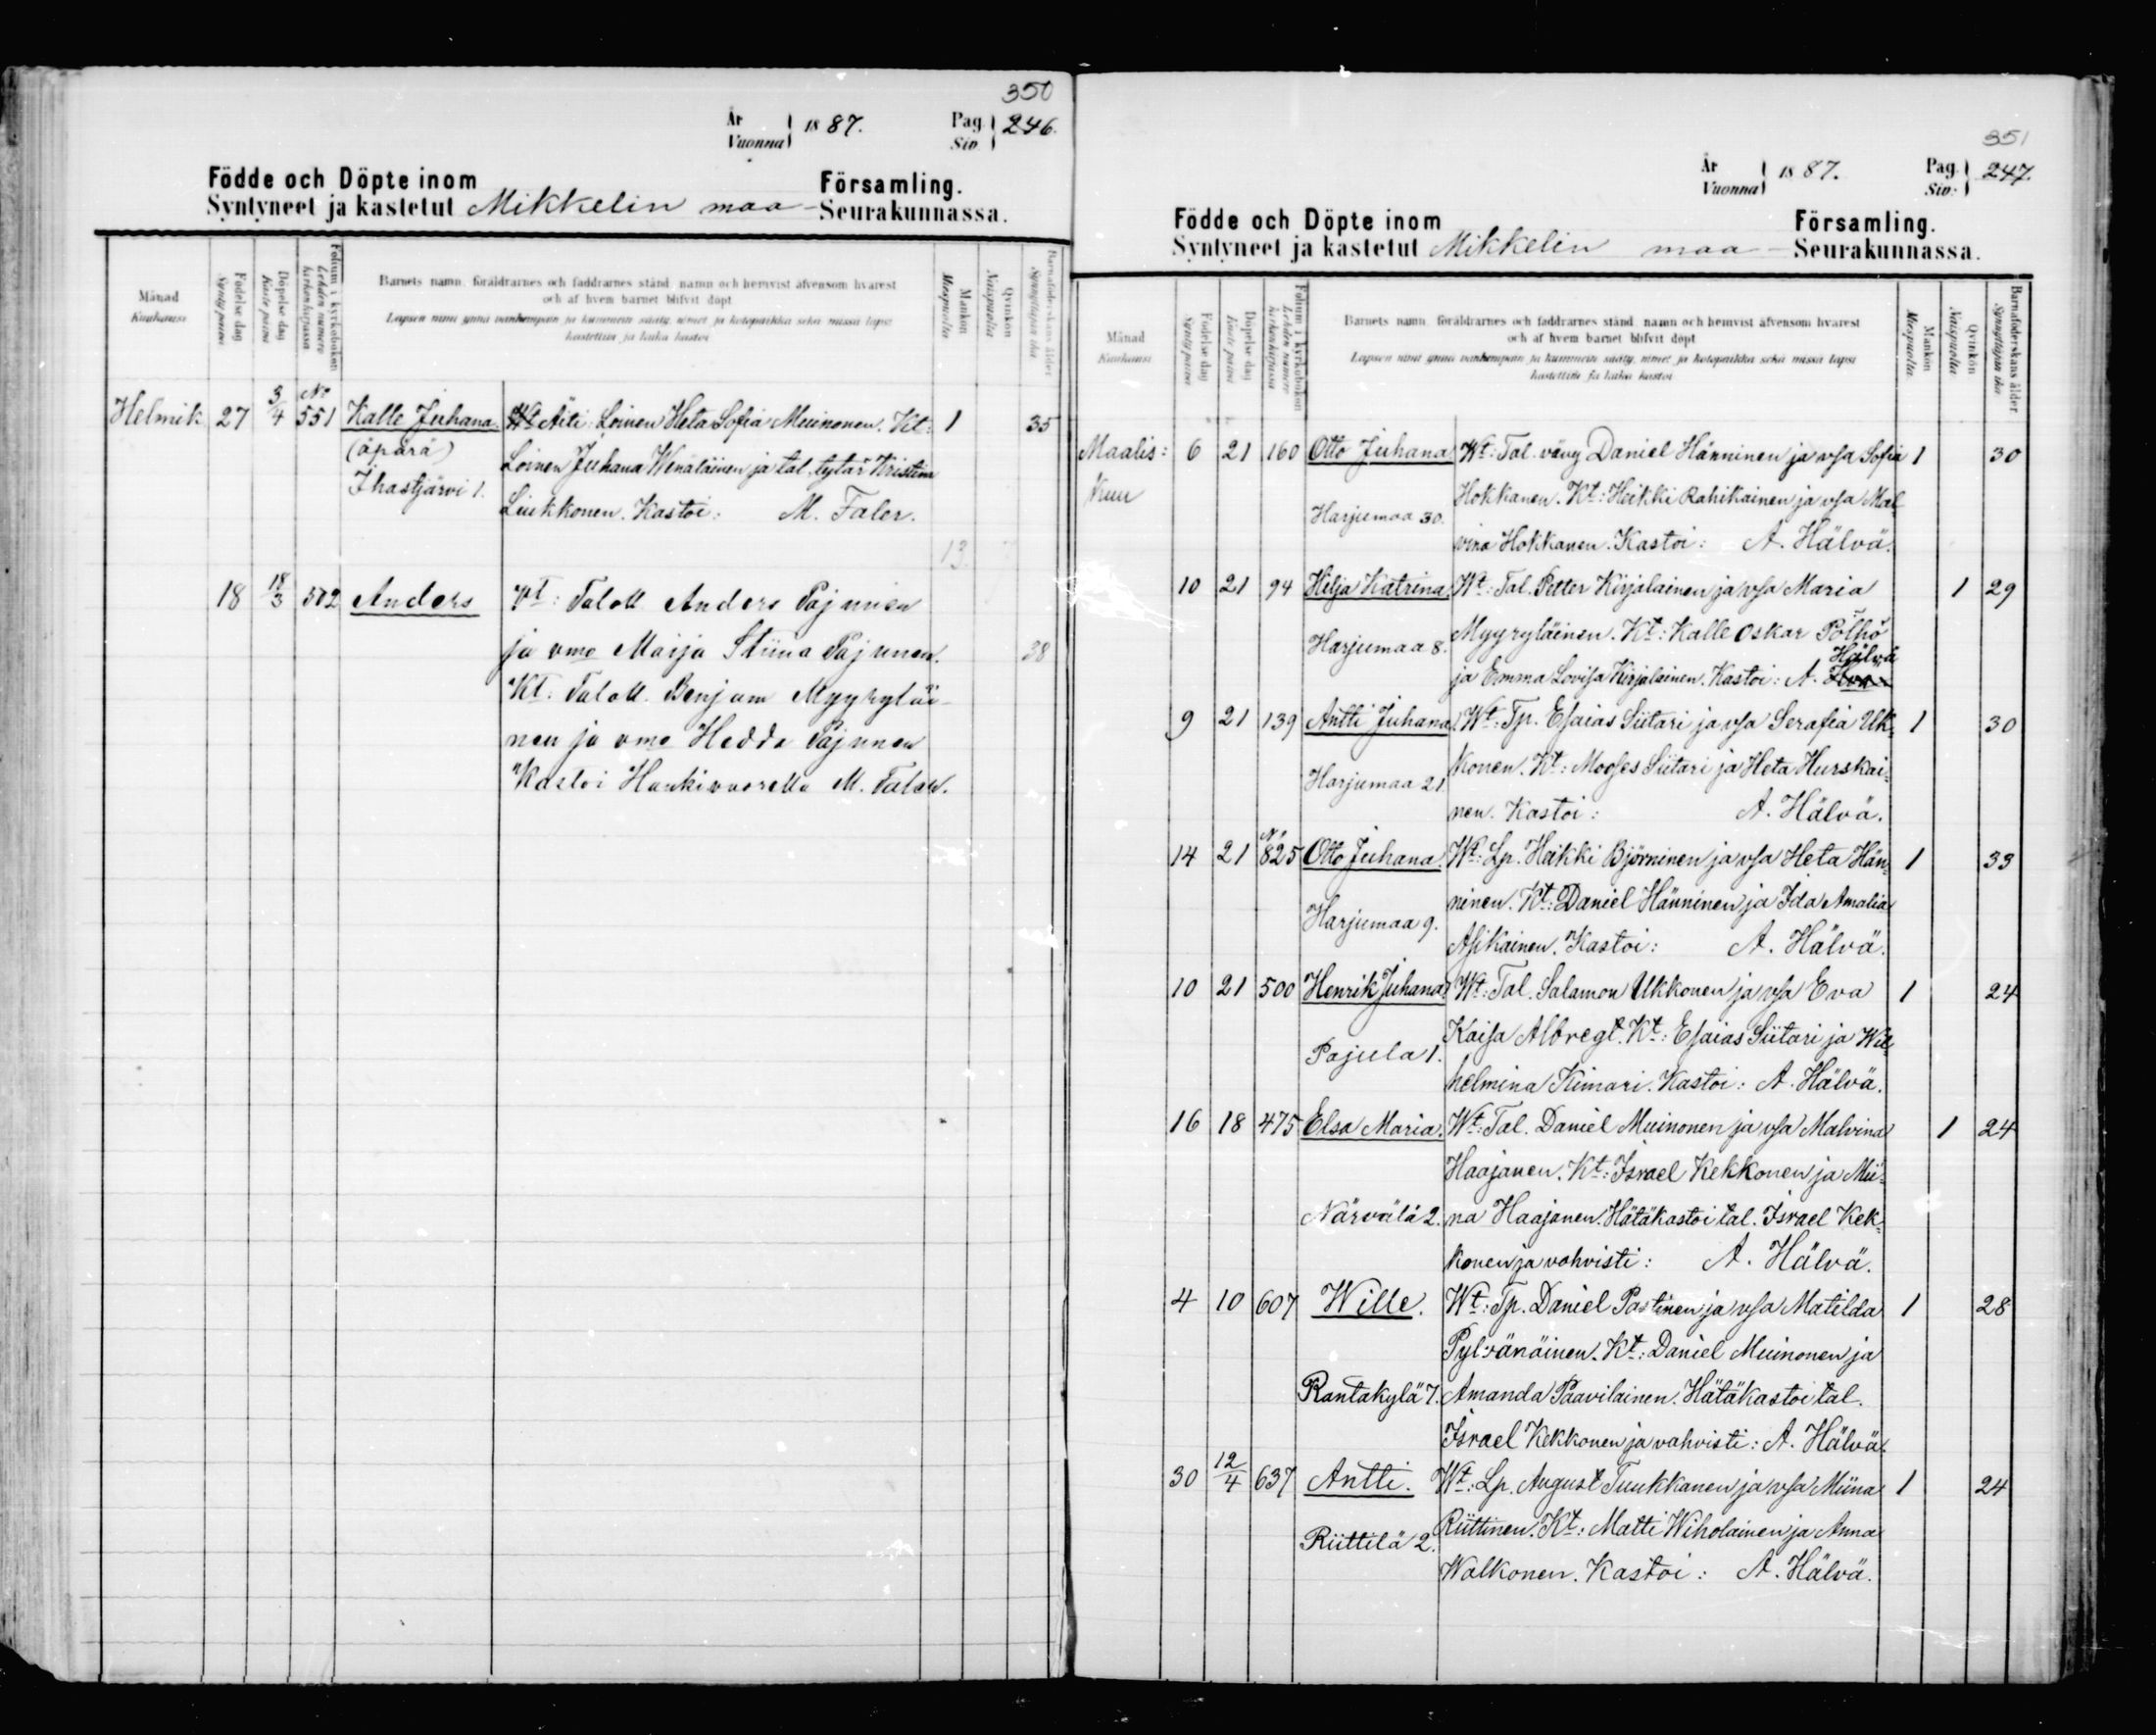 350
År Vuonna 1887. Pag. Siv. 246.
Födde och Döpte inom Församling.
Syntyneet ja kastetut Mikkelin maa- Seurakunnassa.
Månad Kuukausi
Födelse dag Syntypäivä
Döpelse dag Kaste päivä
Folium i kyrkoboken Lehden numero kirkonkirjassa
Barnets namn, föräldrarnes och faddrarnes stånd, namn och hemvist äfvensom hvarest
och af hvem barnet blifvit döpt
Lapsen nimi ynnä vanhempain ja kummein sääty, nimet ja kotopaikka sekä missä lapsi
kastettiin ja kuka kastoi
Mankön Miespuolia
Qvinkön Naispuolia
Barnaföderskans ålder Synnyttäjän ikä
Helmik. 27 3/4 No 551 Kalle Juhana. Äiti: Loinen Heta Sofia Muinonen. Kt: 1 35
(äpärä) Loinen Juhana Wenäläinen ja tal. tytär Kristina
Ihastjärvi 1. Liukkonen. Kastoi: M. Faler.
13 7
18 18/3 502 Anders Vt: Taloll. Anders Pajunen
ja vmo Maija Stiina Pajunen. 38
Kt. Taloll. Benjam Myyryläi-
nen ja vmo Hedda Pajunen
Kastoi Haukivuorella M. Faler.
351
År Vuonna 1887. Pag. Siv. 247.
Födde och Döpte inom Församling.
Syntyneet ja kastetut Mikkelin maa- Seurakunnassa.
Månad Kuukausi
Födelse dag Syntypäivä
Döpelse dag Kaste päivä
Folium i kyrkoboken Lehden numero kirkonkirjassa
Barnets namn, föräldrarnes och faddrarnes stånd, namn och hemvist äfvensom hvarest
och af hvem barnet blifvit döpt
Lapsen nimi ynnä vanhempain ja kummein sääty, nimet ja kotopaikka sekä missä lapsi
kastettiin ja kuka kastoi
Mankön Miespuolia.
Qvinkön Naispuolia
Barnaföderskans ålder Synnyttäjän ikä
Maalis: 6 21 160 Otto Juhana Wt: Tal. vävy Daniel Hänninen ja vsa Sofia 1 30
kuu Hokkanen. Kt: Heikki Rahikainen ja vsa Mal
Harjumaa 30. vina Hokkanen. Kastoi: A. Hälvä.
10 21 94 Helja Katrina Wt: Tal. Petter Kirjalainen ja vsa Maria 1 29
Harjumaa 8. Myyryläinen. Kt: Kalle Oskar Pölhö
ja Emma Lovisa Kirjalainen. Kastoi: A. Hälvä
9 21 139 Antti Juhana. Wt: Tp. Esaias Siitari ja vsa Serafia Uk- 1 30
Harjumaa 21. konen. Kt: Mooses Siitari ja Heta Hurskai-
nen. Kastoi: A. Hälvä.
14 21 No 825 Otto Juhana. Wt: Lp. Heikki Björninen ja vsa Heta Hän- 1 33
Harjumaa 9. ninen. Kt: Daniel Hänninen ja Ida Amalia
Asikainen. Kastoi: A. Hälvä.
10 21 500 Henrik Juhana. Wt: Tal. Salamon Ukkonen ja vsa Eva 1 24
Pajula 1. Kaisa Albregt. Kt: Esaias Siitari ja Wil-
helmina Kimari. Kastoi: A. Hälvä.
16 18 475 Elsa Maria. Wt: Tal. Daniel Muinonen ja vsa Malvina 1 24
Haajanen. Kt: Israel Kekkonen ja Mii-
Närvälä 2. na Haajanen. Hätäkastoi tal. Israel Kek-
konen ja vahvisti: A. Hälvä.
4 10 607 Wille. Wt: Tp. Daniel Pastinen ja vsa Matilda 1 28
Pylvänäinen. Kt: Daniel Muinonen ja
Rantakylä 7. Amanda Paavilainen. Hätäkastoi tal.
Israel Kekkonen ja vahvisti: A. Hälvä.
30 12/4 637 Antti. Wt: Lp. August Tuukkanen ja vsa Miina 1 24
Riittilä 2. Riittinen. Kt: Matti Wiholainen ja Anna
Walkonen. Kastoi: A. Hälvä.